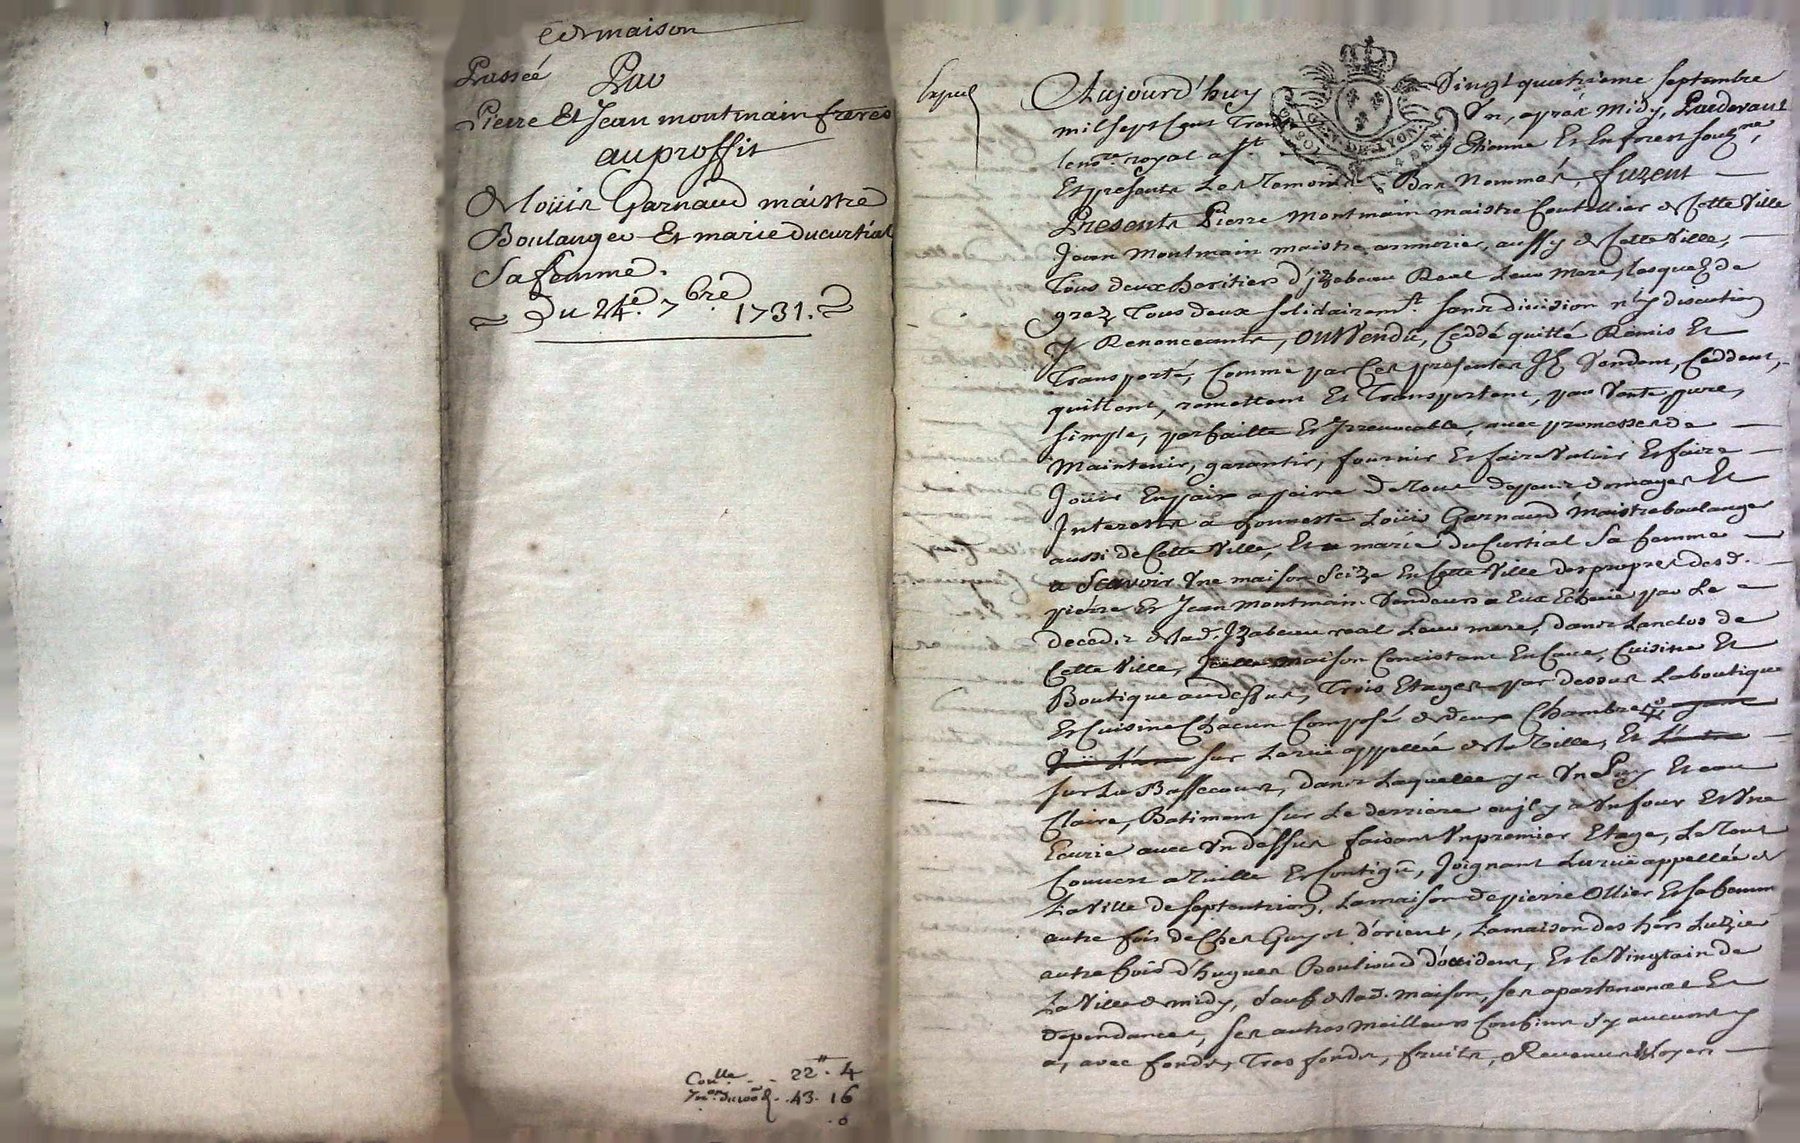 de maison
Passéé Par
Pierre Et Jean montmain freres
au proffit
de loüis Garnaud maistre
Boulanger Et marie ducurtial
Sa femme.
Du 24e. 7bre 1731.
Coolle - - 22 - 4
43 - 16
0
GEN. DE LYON.
Aujourd'huy Vingt quatrieme septembre
mil sept Cent Trente Un, apres midy, Pardevant
le nore royal a St Etienne Et En forest soubz.ne,
Et presents Les Temoins Bas Nommés, furent
Presents Pierre Montmain maistre Coutellier de Cette Ville
Jean Montmain maistre armurier, aussy de Cette Ville,
Tous deux heritiers d'izabeau Real Leur Mere, lesquelz de
grez Tous deux solidairemt. sans division ny discution
Y Renonceants, Ont Vendu, Ceddé quitté Remis Et
Transporté, Comme par Ces presentes Ilz Vendent, Ceddent,
quittent, remettent Et Transportent, par Vente pure,
simple, parfaitte Et Irrevocable, avec promesses de
Maintenir, garantir, fournir Et faire Valoir Et faire
Joüir En paix a peine de Tous depens domages Et
Interests a honneste Loüis Garnaud Maistre boulanger
aussi de Cette Ville, Et a marie du Curtial Sa femme
a Scavoir Une maison Scize En Cette Ville des propres desd.
pierre Et Jean Montmain Vendeurs a Eux Echeüe par Le
deced. de lad. Izabeau real Leur mere, dans Lenclos de
Cette Ville, Icelle Maison Concistant En Cave, Cuisine Et
Boutique au dessus, Trois Etages par dessus La boutique
Et Cuisine Chacun Composé de deux Chambres ayant
Veüe L'une sur La rüe appellée de la Ville, Et L'autre
sur La Bassecour, dans Laquelle y a Un Puy Et eau
Claire, Batiment sur Le derriere ou il y a Un four Et Une
Ecurie avec Un dessus faisant Un premier Etage, Le Tout
Couvert a Tuille Et Contigu, Joignant La rüe appellée de
La Ville de septentrion, La maison de pierre Ollier Et sa femme
autre fois de Cher Guyot d'orient, La maison des hers Luzie
autre fois d'hugues Boulioud d'occident, Et le Vingtain de
La Ville de midy, Sauf de lad. maison, ses apartenances Et
dependances, ses autres Meilleurs Confins sy aucuns y
a, avec fonds, Tres fonds, fruits, Revenus Loyers